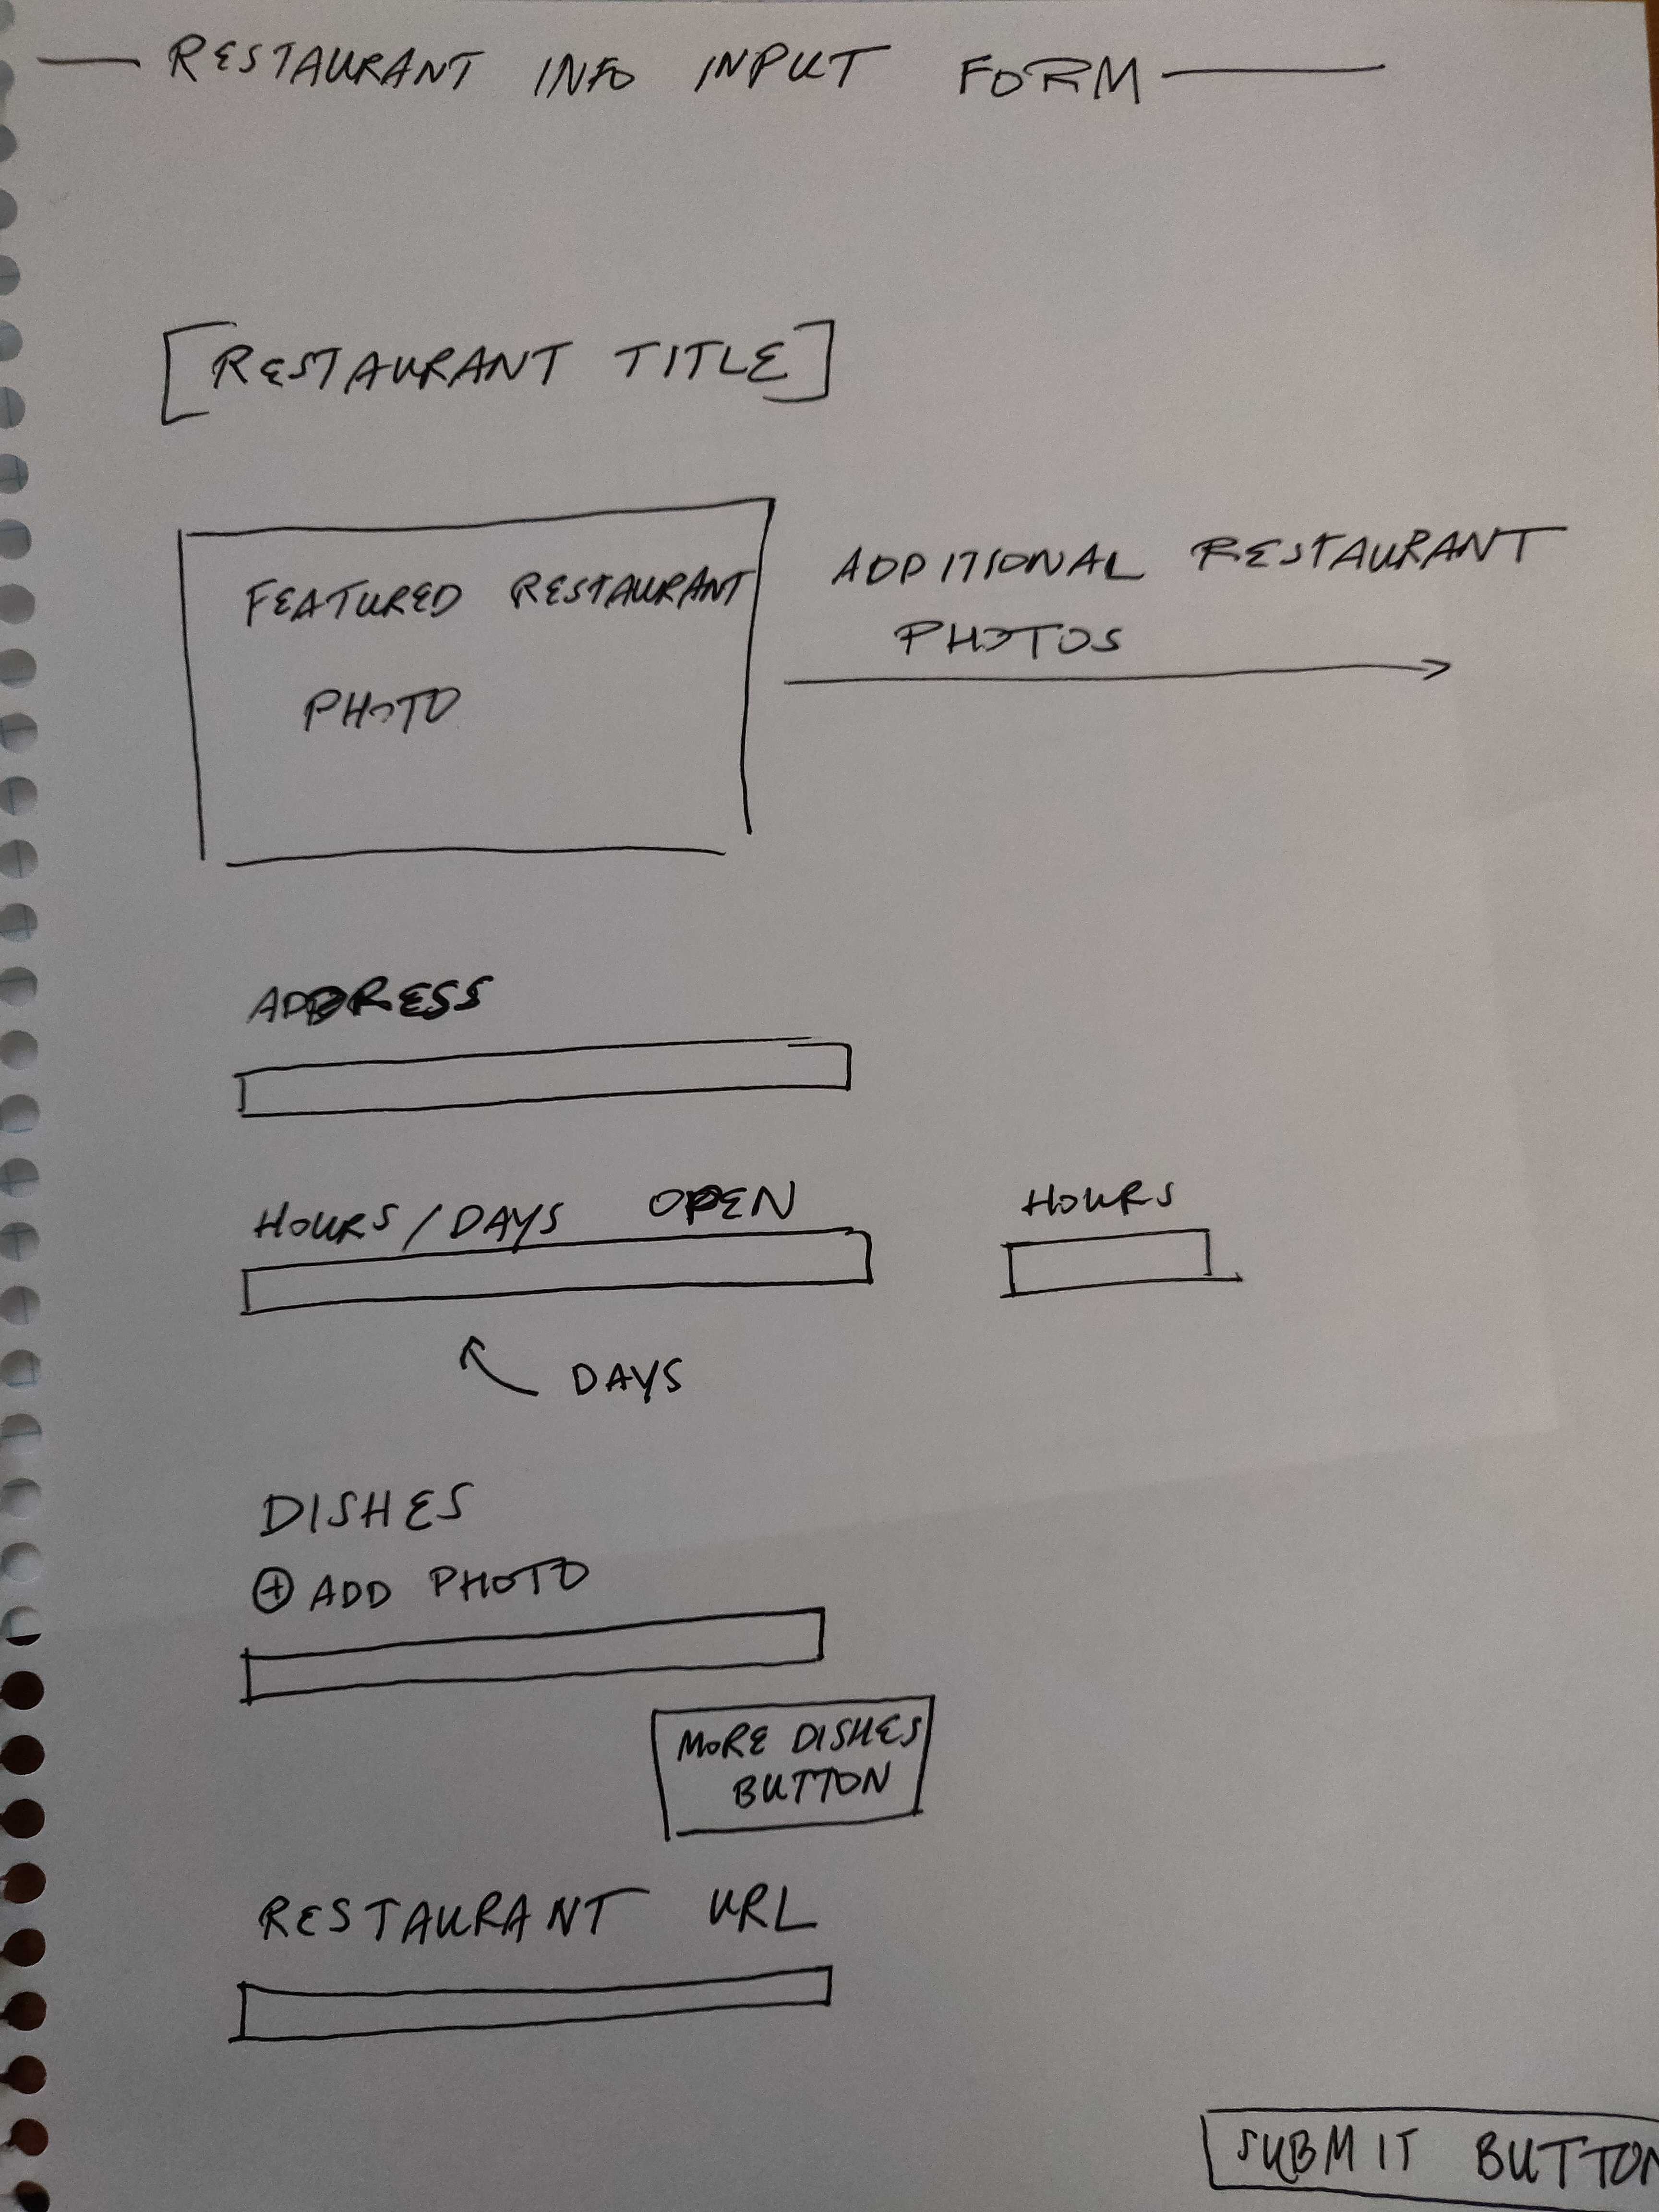 RESTAURANT INFO INPUT FORM
[RESTAURANT TITLE]
FEATURED RESTAURANT
PHOTO
ADDITIONAL RESTAURANT
PHOTOS
ADDRESS
HOURS/DAYS OPEN
HOURS
DAYS
DISHES
⊕ ADD PHOTO
MORE DISHES
BUTTON
RESTAURANT URL
SUBMIT BUTTON